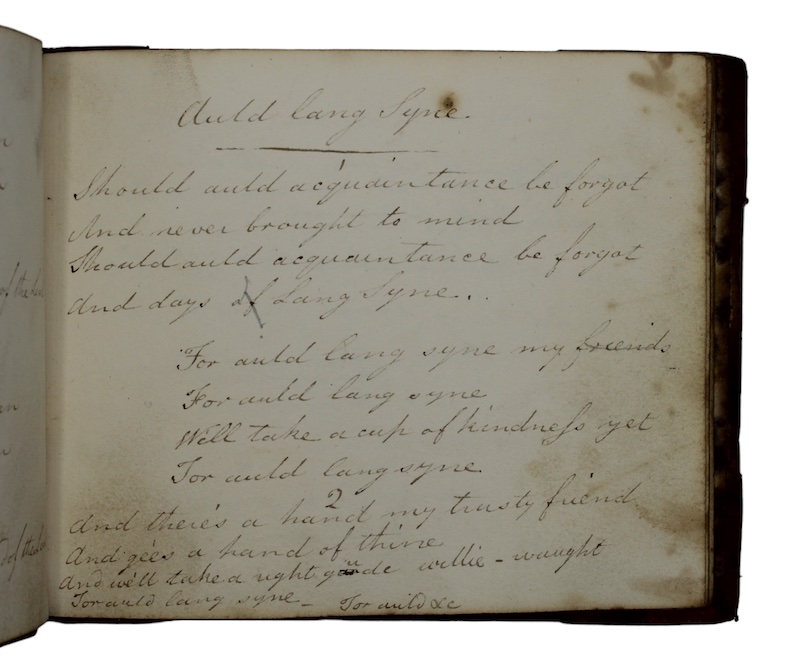 of the
Auld lang Syne.
Should auld acquaintance be forgot
And never brought to mind
Should auld acquaintance be forgot
And days of Lang Syne..
For auld lang syne my friends
For auld lang syne
We'll take a cup of kindness yet
For auld lang syne
2
And there's a hand my trusty friend
And gee's a hand of thine
And we'll take a right gude willie-waught
For auld lang syne - For auld &c